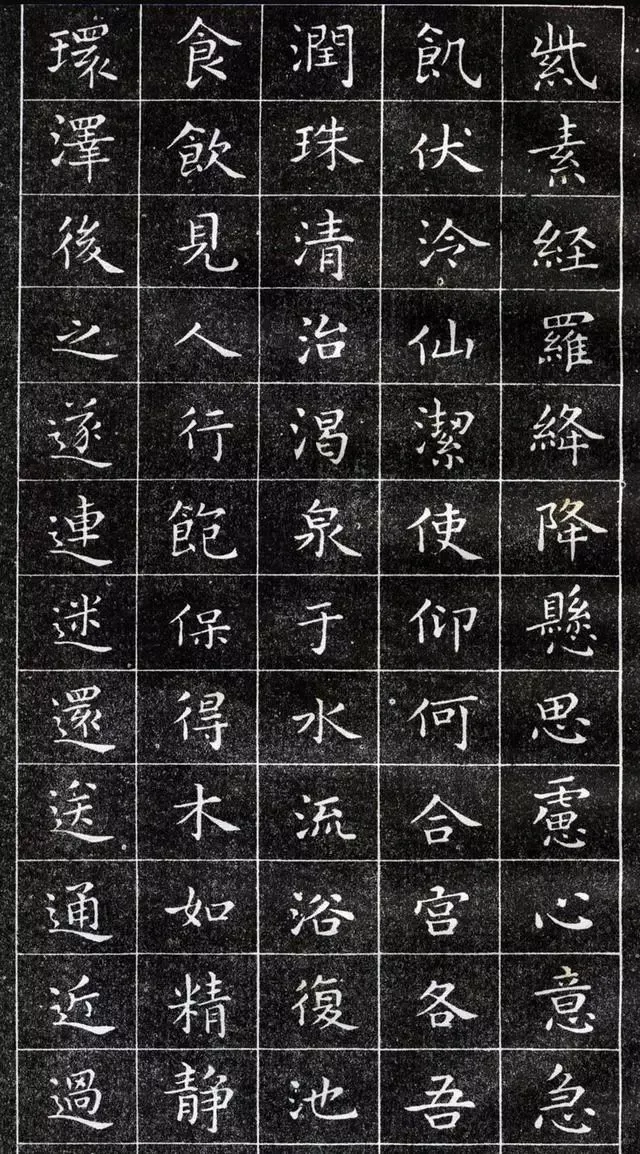 紫素経羅絳降懸思慮心意急
飢伏冷仙潔使仰何合宮各吾
潤珠清治渴泉于水流浴復池
食飲見人行飽保得木如精静
環澤後之遂連迷還送通近過